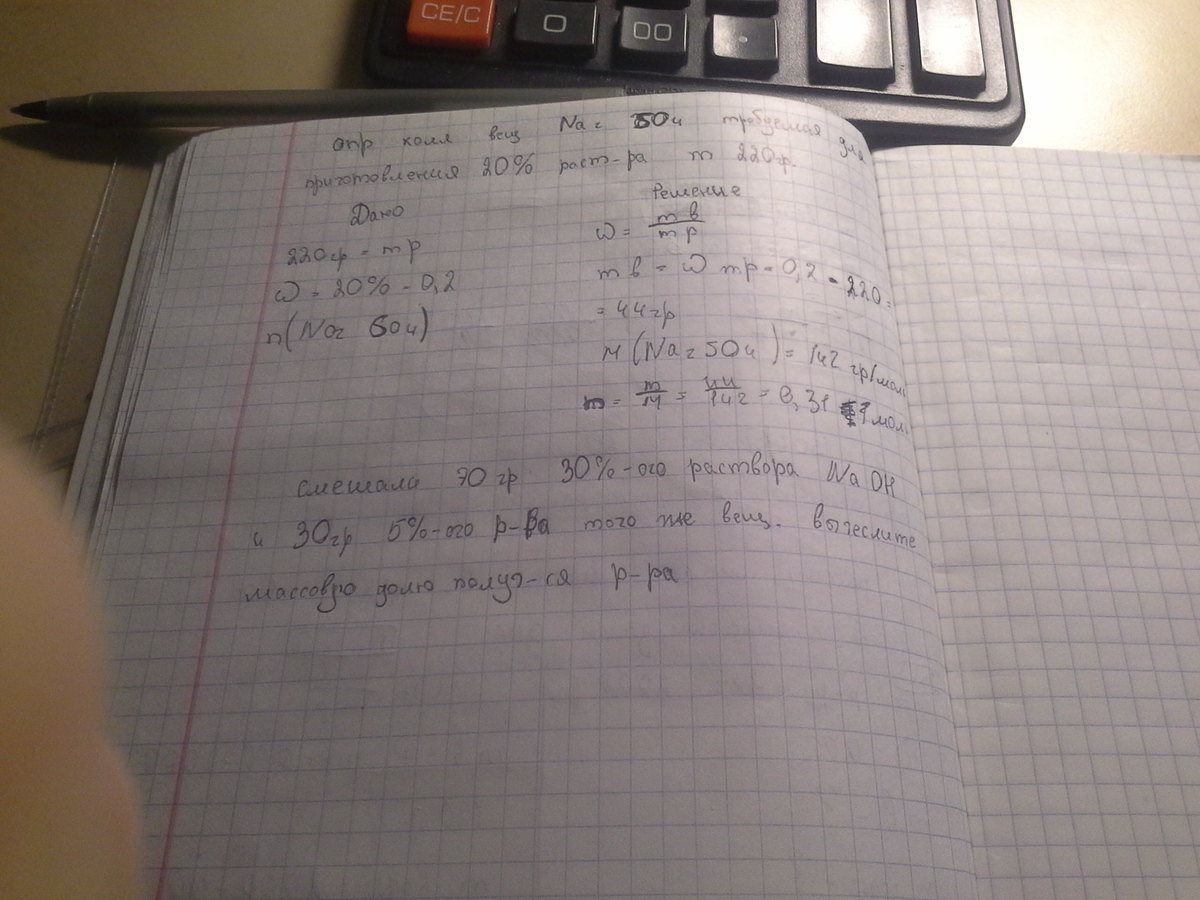 CE/C 0 00 .
опр колл вещ Na2 SO4 требуемая для
приготовления 20% раст-ра m 220гр.
Дано
220гр = mр
ω = 20% - 0,2
n(Na2 SO4)
Решение
ω = mв/mр
mв = ω mр = 0,2 - 220 =
= 44гр
M (Na2 SO4) = 142 гр/моль
m = m/M = 44/142 = 0,31 моль
смешали 70 гр 30%-ого раствора NaOH
и 30гр 5%-ого р-ра того же вещ. вычеслите
массовую долю получ-ся р-ра